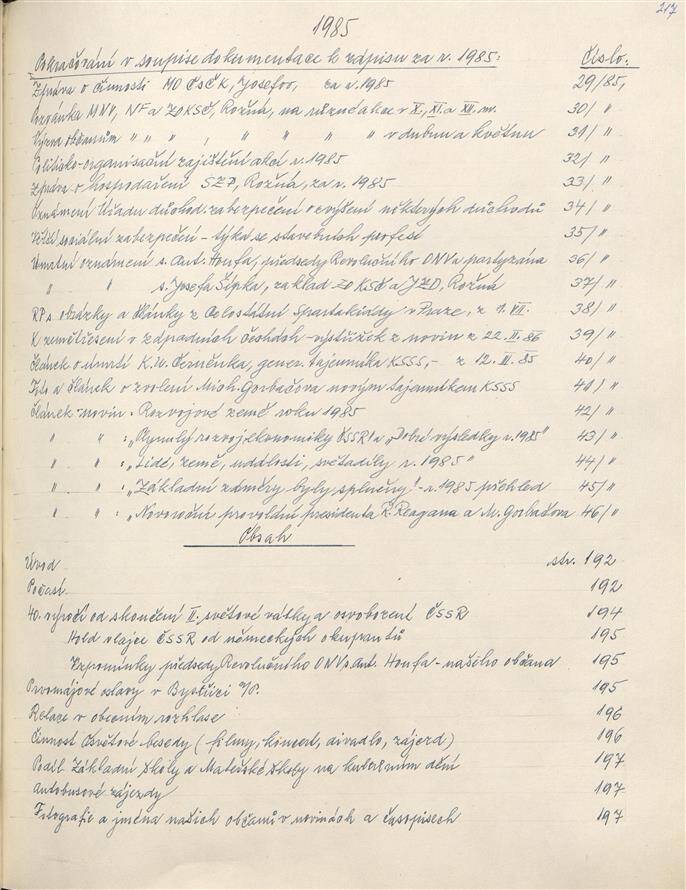 217
1985
Pokračování v soupise dokumentace k zápisu za r. 1985: Číslo:
Zpráva o činnosti MO ČSČK, Josefov, za r. 1985 29/85,
Pozvánka MNV, NF a ZOKSČ, Rožná, na různé akce v X, XI. a XII. m. 30/ "
Výzva občanům " " " , " " " " v dubnu a květnu 31/ "
Politicko-organisační zajištění akcí r. 1985 32/ "
Zpráva o hospodaření SZP, Rožná, za r. 1985 33/ "
Oznámení Úřadu důchod. zabezpečení o zvýšení některých důchodů 34/ "
Vyšší sociální zabezpečení - týká se stavebních profesí 35/ "
Úmrtní oznámení s. Ant. Honfa, předsedy Revolučního ONV a partyzána 36/ "
" " s. Josefa Šípka, zaklad. ZO KSČ a JZD, Rožná 37/ "
RP s obrázky a články z Celostátní Spartakiády v Praze, z 1. VII. 38/ "
K zemětřesení v západních Čechách - výstřižek z novin z 22. II. 86 39/ "
Článek o úmrtí K. U. Černěnka, gener. tajemníka KSSS, - z 12. III. 85 40/ "
Foto a článek o zvolení Mich. Gorbačova novým tajemníkem KSSS 41/ "
Článek-novin: Rozvojové země roku 1985 42/ "
" " : „Plynulý rozvoj ekonomiky ČSSR" a „Dobré výsledky r. 1985" 43/ "
" " : „Lidé, země, události, světadíly r. 1985" 44/ "
" " : „Základní záměry byly splněny" - r. 1985 přehled 45/ "
" " : „Novoroční provolání presidenta R. Reagana a M. Gorbačova 46/ "
Obsah
Úvod str. 192
Počasí 192
40. výročí od skončení II. světové války a osvobození ČSSR 194
Hold vlajce ČSSR od německých okupantů 195
Vzpomínky předsedy Revolučního ONV s. Ant. Honfa - našeho občana 195
Prvomájové oslavy v Bystřici n/P. 195
Relace v obecním rozhlase 196
Činnost Osvětové besedy (filmy, koncert, divadlo, zájezd) 196
Podíl Základní školy a Mateřské školy na kulturním dění 197
Autobusové zájezdy 197
Fotografie a jména našich občanů v novinách a časopisech 197